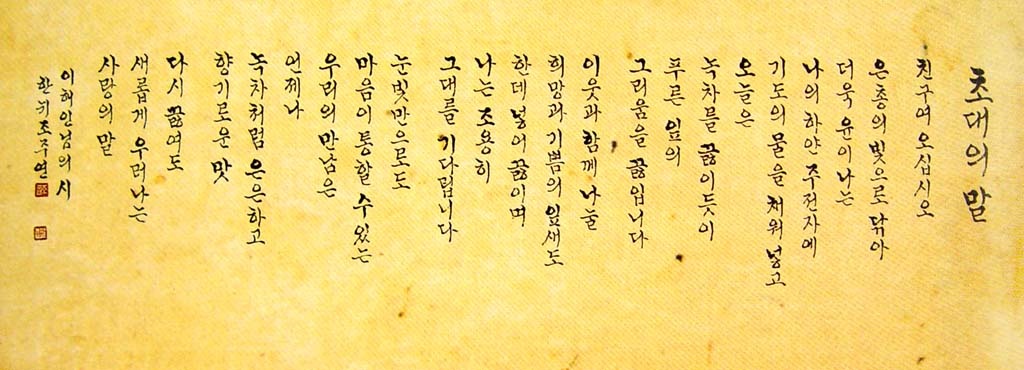 초대의 말
친구여 오십시오
은총의 빛으로 닦아
더욱 윤이나는
나의 하얀 주전자에
기도의 물을 채워 넣고
오늘은
녹차를 끓이듯이
푸른 잎의
그리움을 끓입니다
이웃과 함께 나눌
희망과 기쁨의 잎새도
한데 넣어 끓이며
나는 조용히
그대를 기다립니다
눈빛만으로도
마음이 통할 수 있는
우리의 만남은
언제나
녹차처럼 은은하고
향기로운 맛
다시 끓여도
새롭게 우러나는
사랑의 말
이해인님의 시
조주연